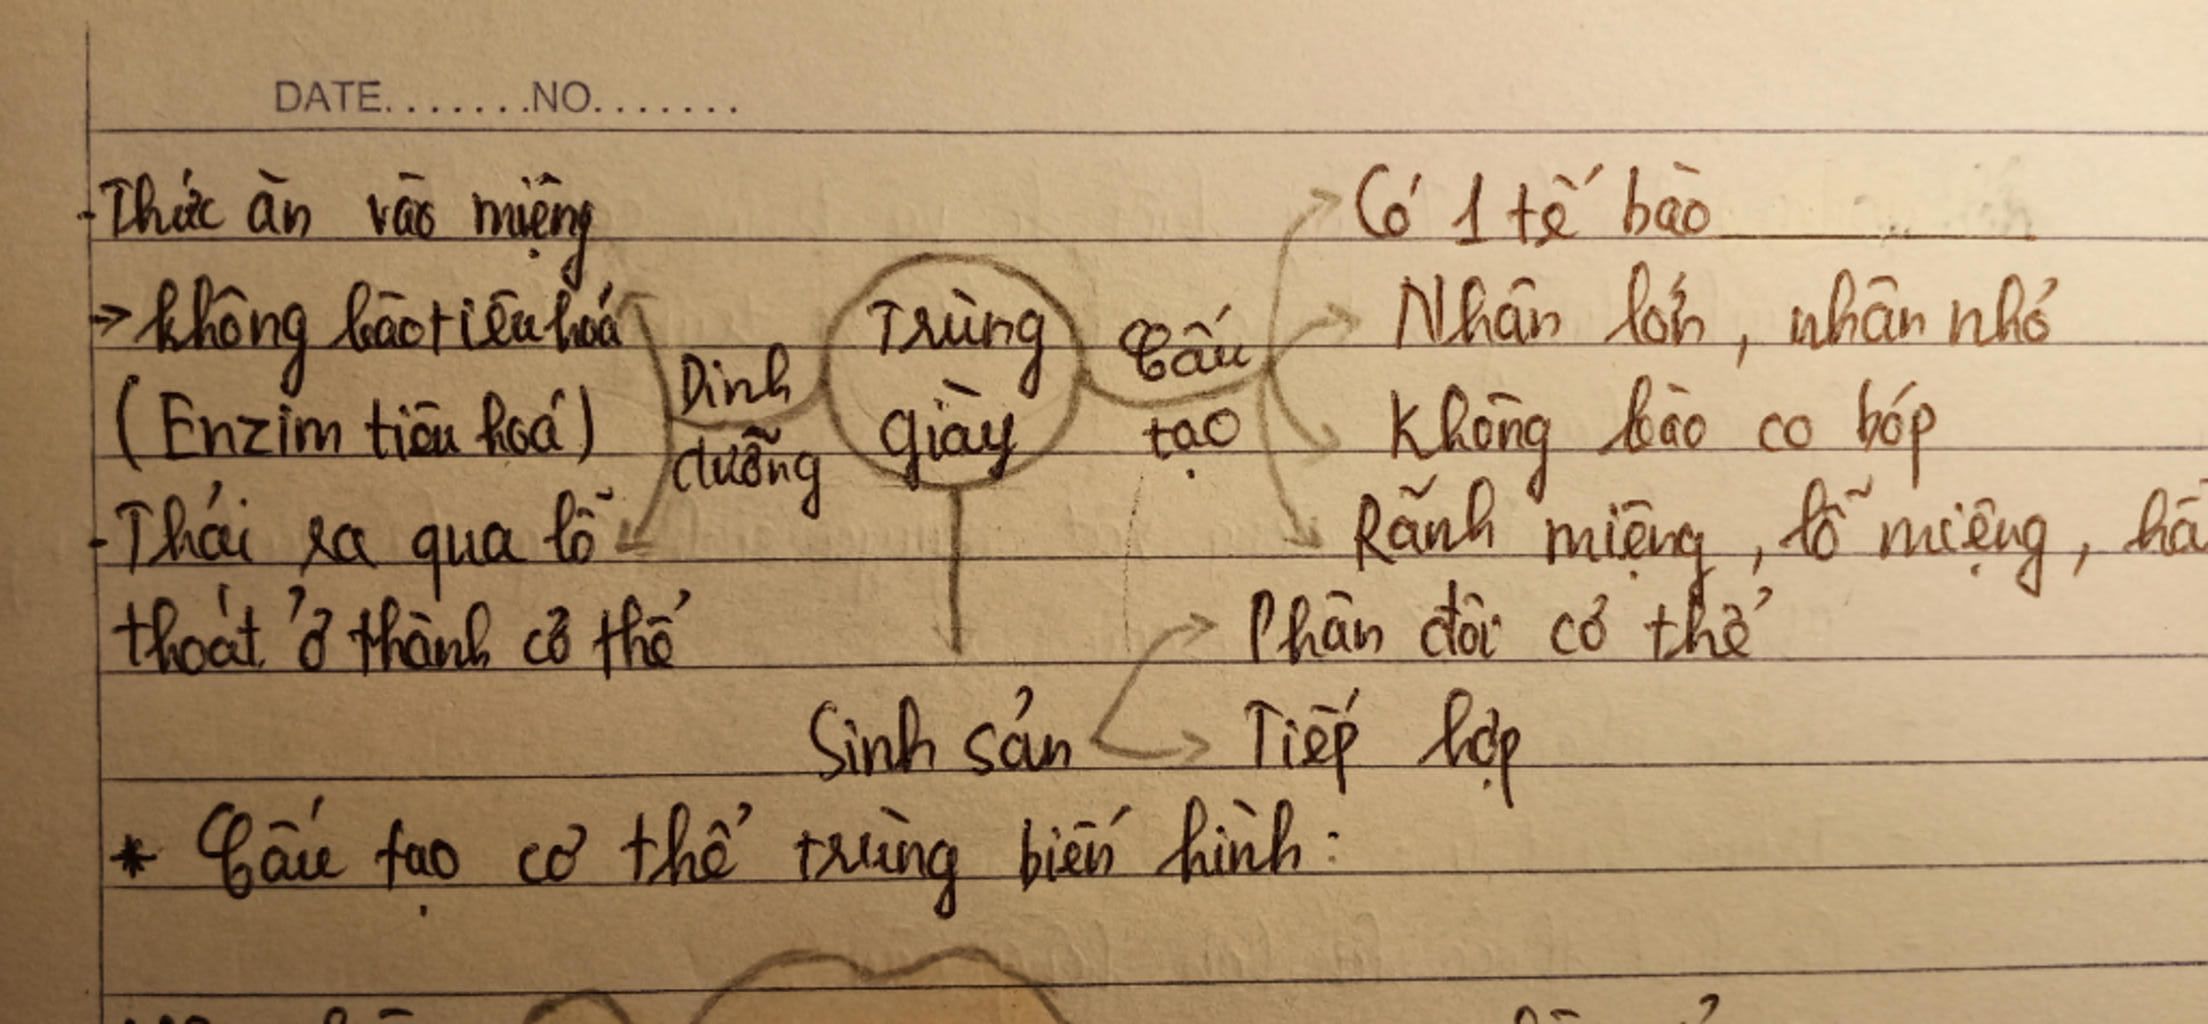 DATE.......NO.......
-Thức ăn vào miệng
→ không bào tiêu hoá
(Enzim tiêu hoá)
-Thải ra qua lỗ
thoát ở thành cơ thể
Dinh
dưỡng
Trùng
giày
Cấu
tạo
Có 1 tế bào
Nhân lớn, nhân nhỏ
Không bào co bóp
Rãnh miệng, lỗ miệng,
Sinh sản
Phân đôi cơ thể
Tiếp hợp
* Cấu tạo cơ thể trùng biến hình: